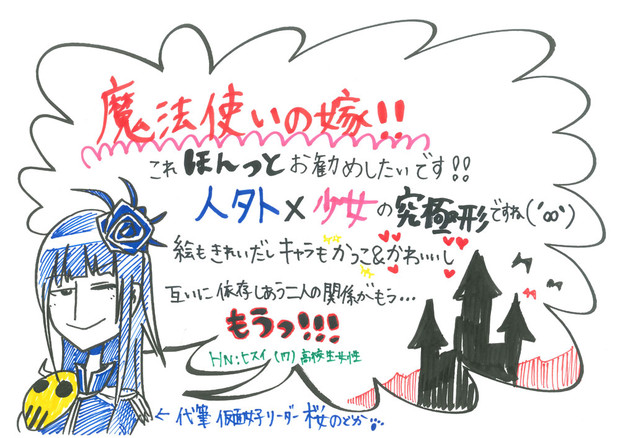 魔法使いの嫁!!
これほんっとお勧めしたいです!!
人外×少女の究極形ですね(´∞`)
絵もきれいだしキャラもかっこ&かわいいし
互いに依存しあう二人の関係がもう…
もうっ!!!
HN:ヒスイ(17)高校生女性
← 代筆 仮面女子リーダー 桜のどか